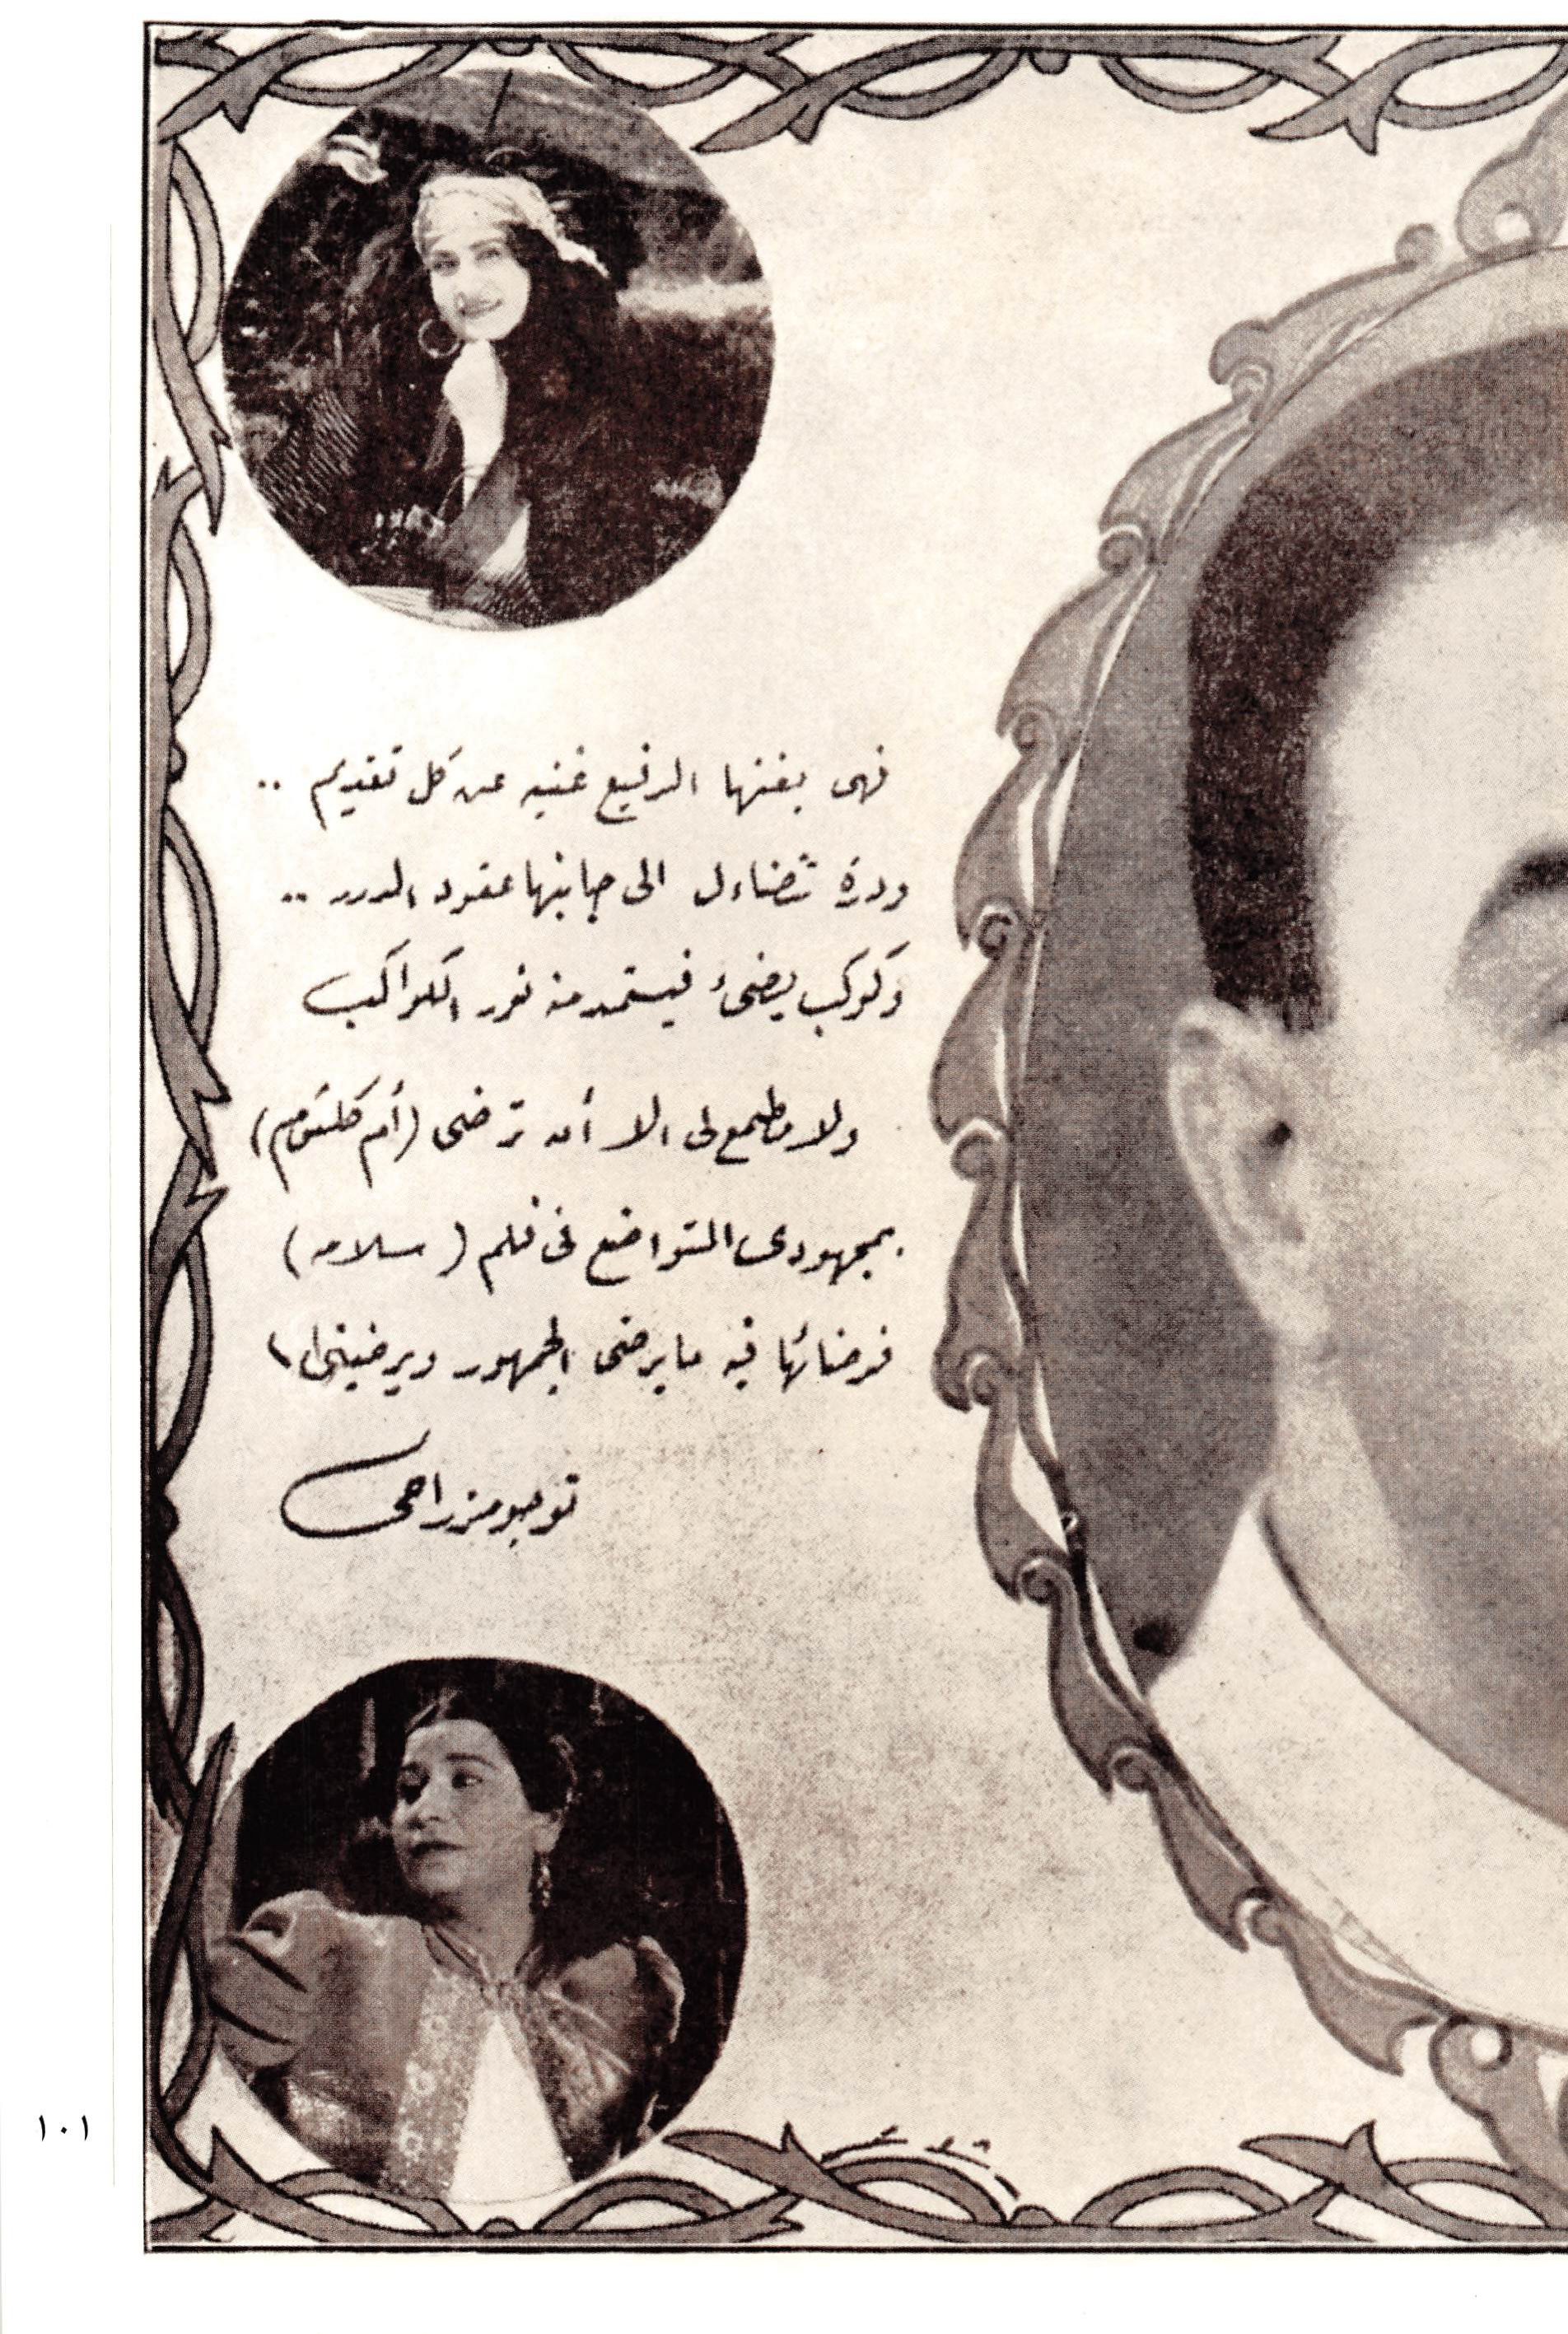 فهى بفنها الرفيع غنيه عن كل تقديم ..
ودرة تتضاءل الى جانبها عقود الدرر ..
وكوكب يضىء فيستمد منه نوره الكواكب
ولا مطمع لى الا أن ترضى (أم كلثوم)
بمجهودى المتواضع فى فلم (سلامه)
فرضائها فيه ما يرضى الجمهور ويرضينى
توجو مزراحى
١٠١